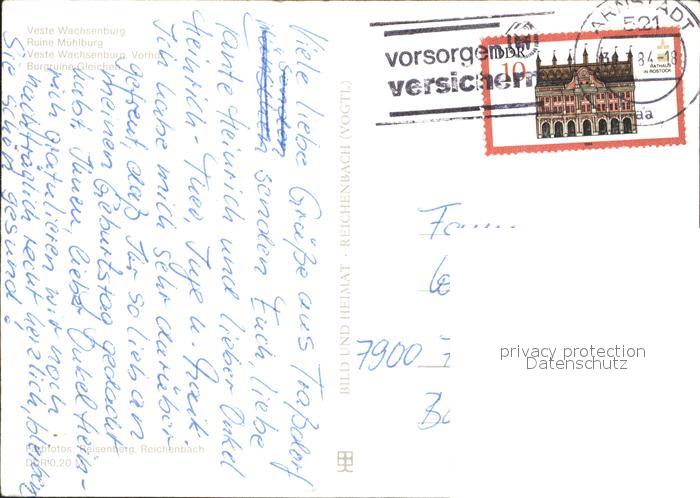 Veste Wachsenburg
Ruine Mühlburg
Veste Wachsenburg, Vorhof
Burgruine Gleichen
Viele liebe Grüße aus Traßdorf
senden Euch, liebe
Tante Heinrich und lieber Onkel
Heinrich - Theo, Inge u. Maik.
Ich habe mich sehr darüber
gefreut, daß Ihr so lieb an
meinen Geburtstag gedacht
habt. Ihnen, lieber Onkel Hein-
rich gratulieren wir noch
nachträglich recht herzlich, bleiben
Sie schön gesund!
Farbfotos: Beisenberg, Reichenbach
DDR 0,20
BILD UND HEIMAT · REICHENBACH (VOGTL)
vorsorgen
versichern
DDR
10
RATHAUS
IN ROSTOCK
1984
ARNSTADT
521
84-18
aa
7900
privacy protection
Datenschutz